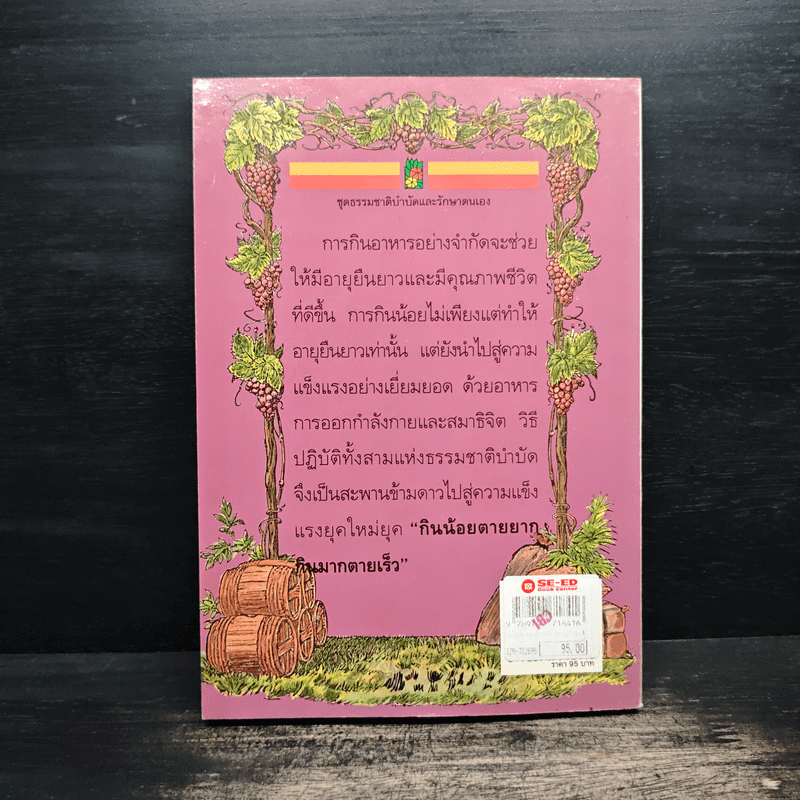 ชุดธรรมชาติบำบัดและรักษาตนเอง
การกินอาหารอย่างจำกัดจะช่วย
ให้มีอายุยืนยาวและมีคุณภาพชีวิต
ที่ดีขึ้น การกินน้อยไม่เพียงแต่ทำให้
อายุยืนยาวเท่านั้น แต่ยังนำไปสู่ความ
แข็งแรงอย่างเยี่ยมยอด ด้วยอาหาร
การออกกำลังกายและสมาธิจิต วิธี
ปฏิบัติทั้งสามแห่งธรรมชาติบำบัด
จึงเป็นสะพานข้ามดาวไปสู่ความแข็ง
แรงยุคใหม่ยุค “กินน้อยตายยาก
กินมากตายเร็ว”
SE-ED
Book Center
95.00
ราคา 95 บาท